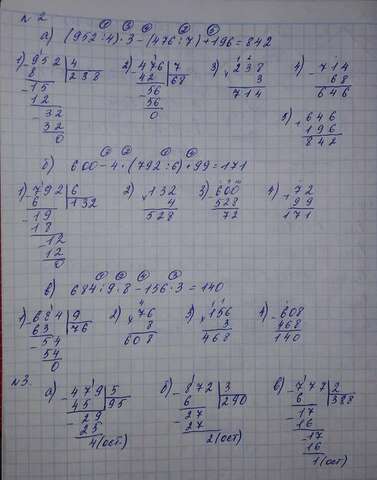 № 2
а) (952:4)·3-(476:7)+196=842
1) 952 | 4
8 | 238
15
12
32
32
0
2) 476 | 7
42 | 68
56
56
0
3) 238
3
714
4) 714
68
646
5) 646
196
842
б) 600-4·(792:6)+99=171
1) 792 | 6
6 | 132
19
18
12
12
0
2) 132
4
528
3) 600
528
72
4) 72
99
171
в) 684:9·8-156·3=140
1) 684 | 9
63 | 76
54
54
0
2) 76
8
608
3) 156
3
468
4) 608
468
140
№3.
а) 479 | 5
45 | 95
29
25
4 (ост.)
б) 872 | 3
6 | 290
27
27
2 (ост)
в) 777 | 2
6 | 388
17
16
17
16
1 (ост)